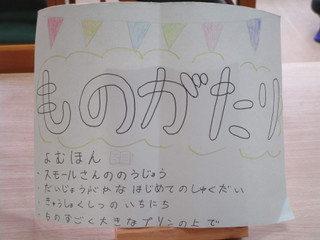 ものがたり
よむほん
・スモールさんののうじょう
・だいじょうぶかな はじめてのしゅくだい
・きゅうしょくしつの いちにち
・ものすごく大きなプリンの上で